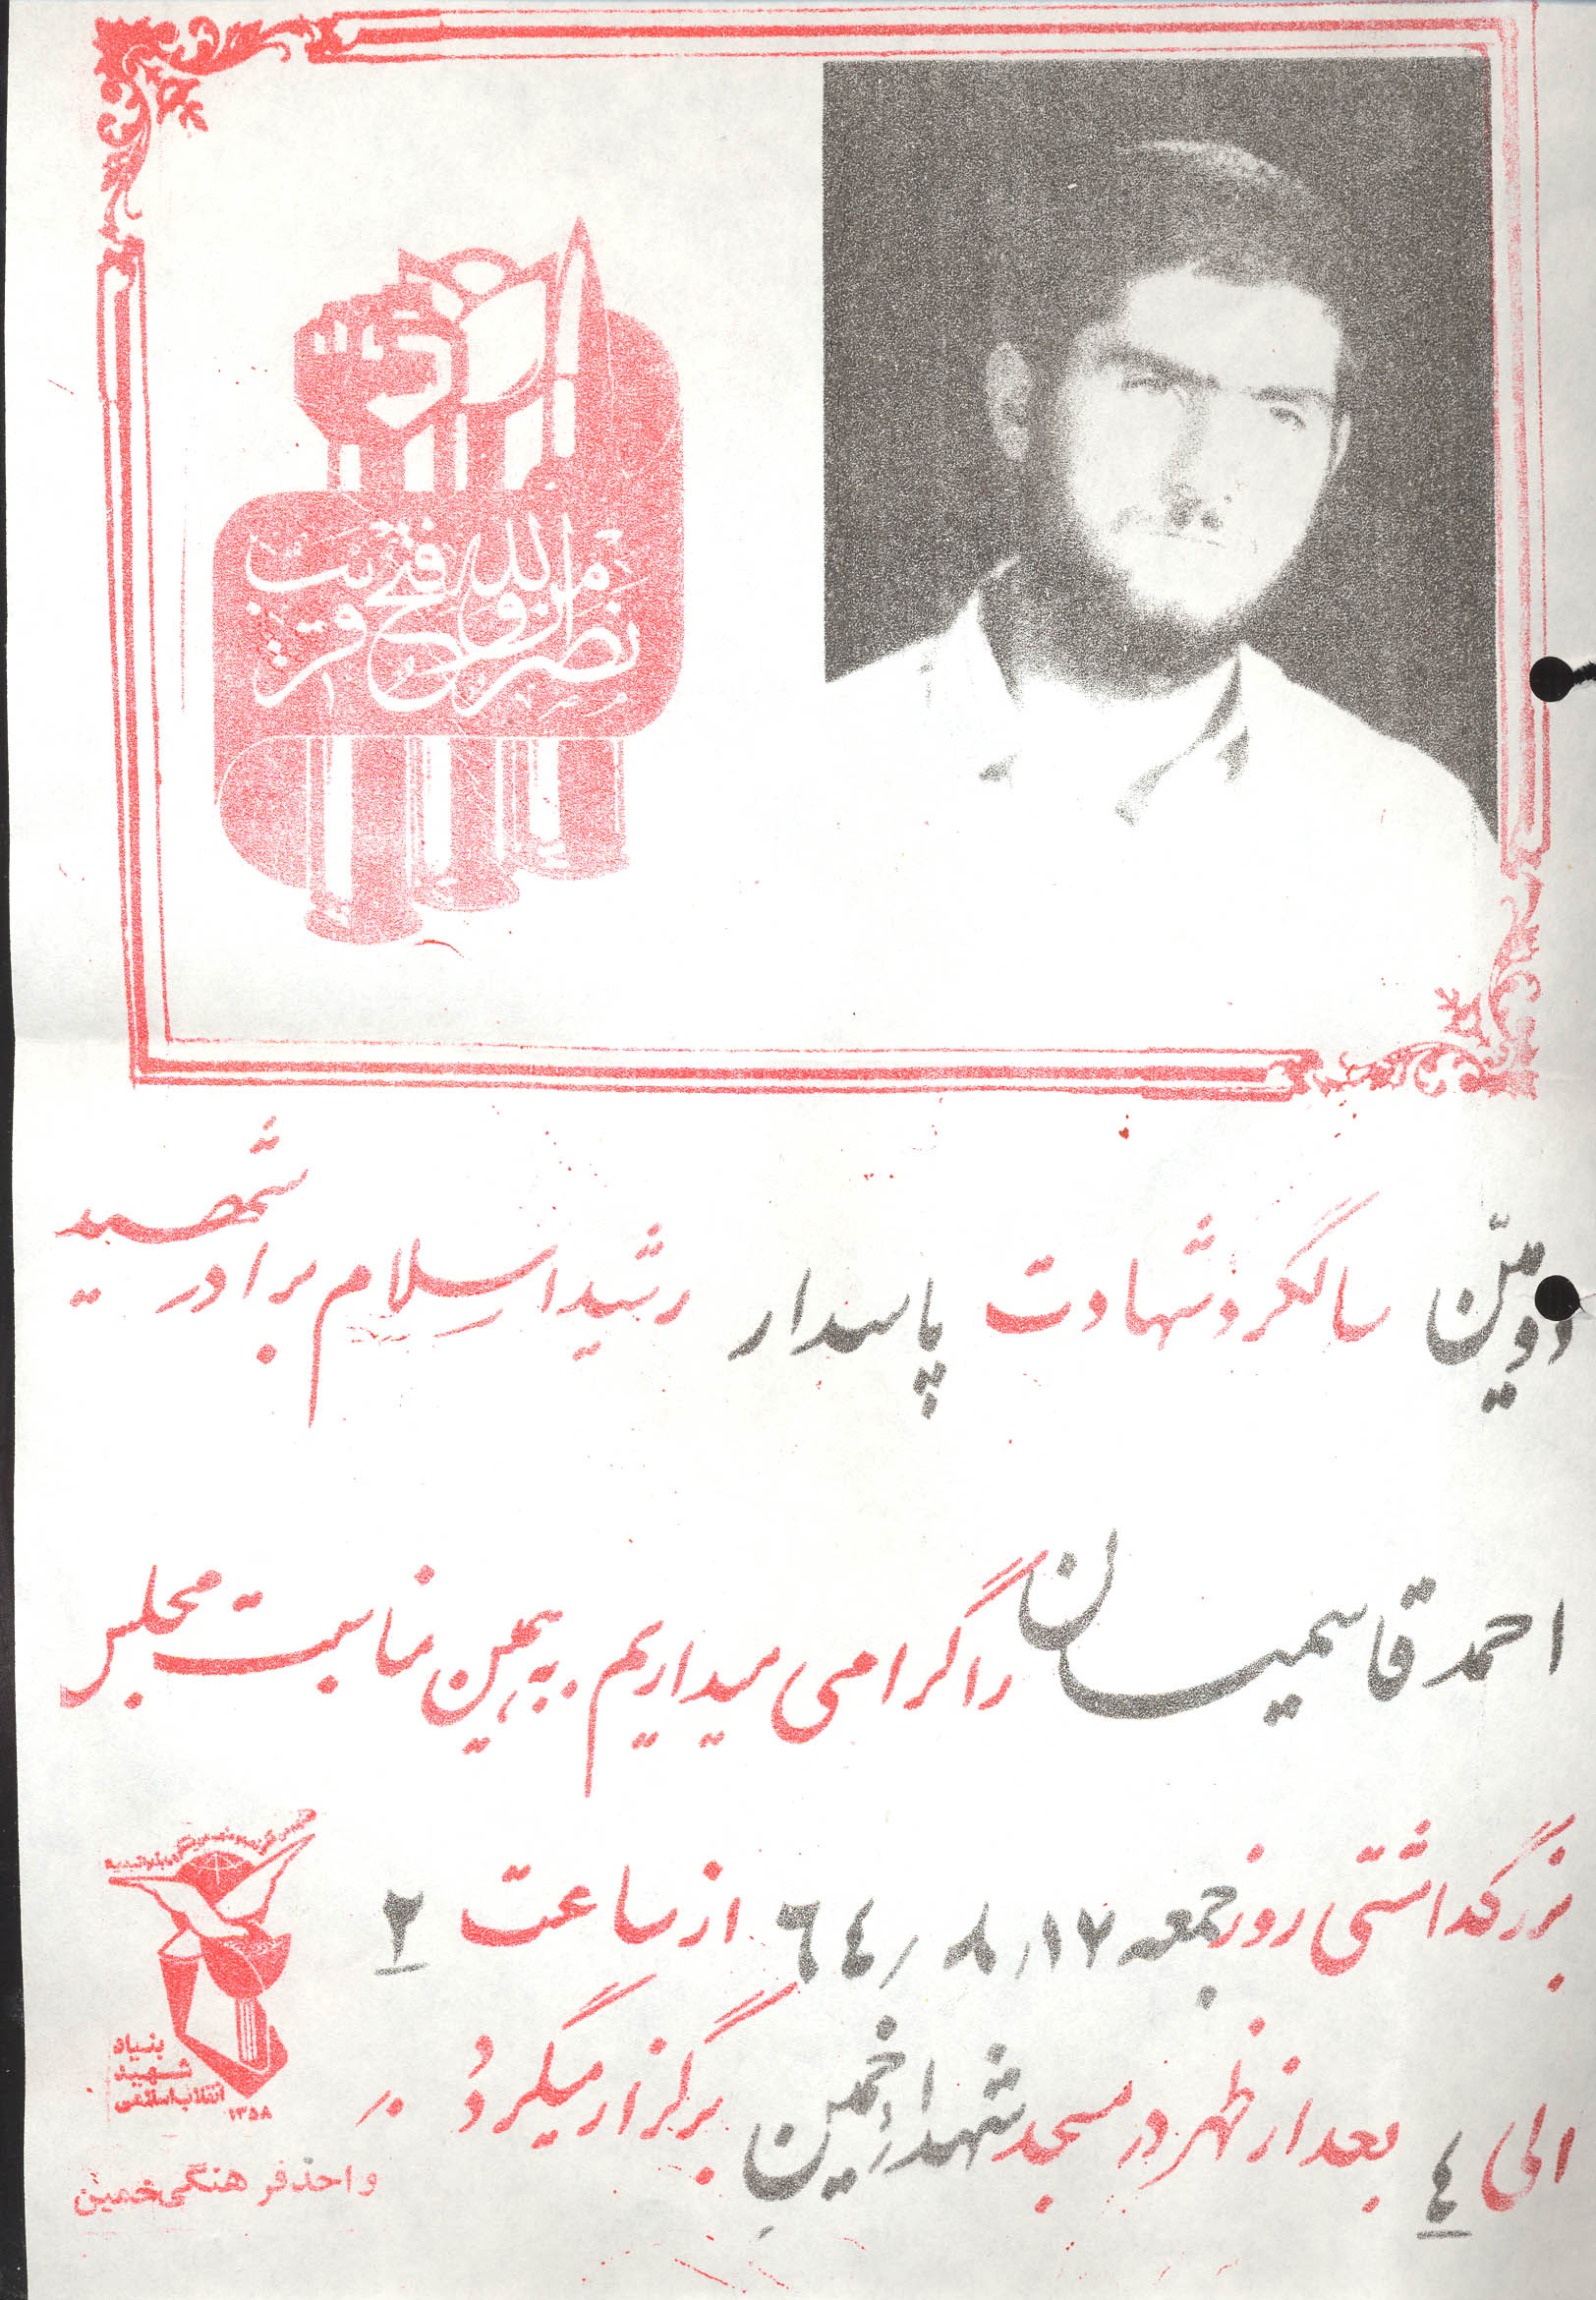 نصر من الله و فتح قریب
دومین سالگرد شهادت پاسدار رشید اسلام برادر شهید
احمد قاسمیان را گرامی میداریم. بهمین مناسبت مجلس
بزرگداشتی روز جمعه ۱۷/۸/۶۴ از ساعت ۲
الی ۴ بعد از ظهر در مسجد شهداء خمین برگزار میگردد
بنیاد
شهید
انقلاب اسلامی
۱۳۵۸
واحد فرهنگی خمین